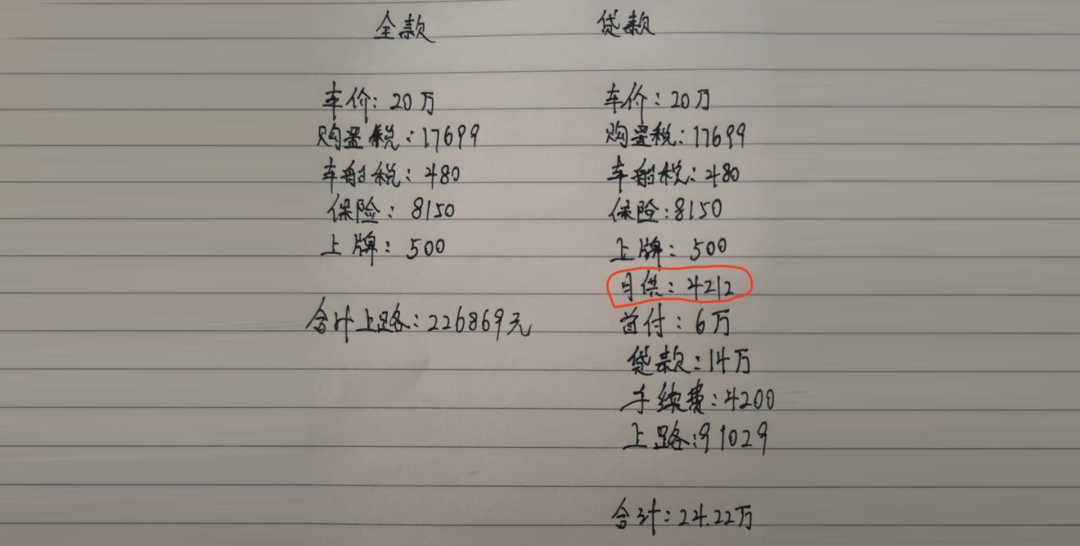 全款
车价：20万
购置税：17699
车船税：480
保险：8150
上牌：500
合计上路：226869元
贷款
车价：20万
购置税：17699
车船税：480
保险：8150
上牌：500
月供：4212
首付：6万
贷款：14万
手续费：4200
上路：91029
合计：24.22万